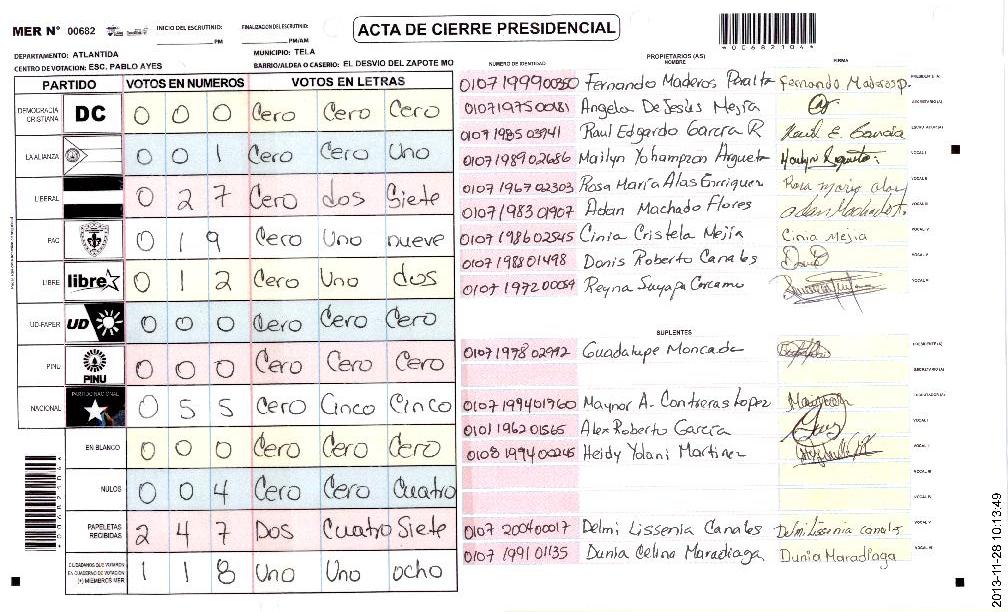 MER Nº 00682 INICIO DEL ESCRUTINIO: PM FINALIZACION DEL ESCRUTINIO: PM/AM
ACTA DE CIERRE PRESIDENCIAL
DEPARTAMENTO: ATLANTIDA MUNICIPIO: TELA
CENTRO DE VOTACION: ESC. PABLO AYES BARRIO/ALDEA O CASERIO: EL DESVIO DEL ZAPOTE MO
PARTIDO VOTOS EN NUMEROS VOTOS EN LETRAS
DEMOCRACIA CRISTIANA DC 0 0 0 Cero Cero Cero
LA ALIANZA 0 0 1 Cero Cero Uno
LIBERAL 0 2 7 Cero dos Siete
PAC 0 1 9 Cero Uno nueve
LIBRE libre 0 1 2 Cero Uno dos
UD-FAPER UD 0 0 0 Cero Cero Cero
PINU PINU 0 0 0 Cero Cero Cero
NACIONAL PARTIDO NACIONAL 0 5 5 Cero Cinco Cinco
EN BLANCO 0 0 0 Cero Cero Cero
NULOS 0 0 4 Cero Cero Cuatro
PAPELETAS RECIBIDAS 2 4 7 Dos Cuatro Siete
CIUDADANOS QUE VOTARON EN CUADERNO DE VOTACION (+) MIEMBROS MER 1 1 8 Uno Uno ocho
NUMERO DE IDENTIDAD PROPIETARIOS (AS) NOMBRE FIRMA
0107199900350 Fernando Maderos Peralta Fernando Maderos P. PRESIDENTE (A)
0107197500181 Angela DeJesus Mejia SECRETARIO (A)
0107198503941 Raul Edgardo Garcia R Raul E. Garcia ESCRUTADOR (A)
0107198902686 Mailyn Yohampzon Argueta VOCAL I
0107196702303 Rosa María Alas Enrriquez Rosa maria alas VOCAL II
0107198301907 Adan Machado Flores adan Machado f. VOCAL III
0107198602545 Cinia Cristela Mejía Cinia Mejia VOCAL IV
0107198801498 Donis Roberto Canales VOCAL V
0107197200054 Reyna Suyapa Carcamo VOCAL VI
SUPLENTES
0107197802992 Guadalupe Moncada PRESIDENTE (A)
SECRETARIO (A)
0107199401760 Maynor A. Contreras Lopez ESCRUTADOR (A)
0101196201565 Alex Roberto García VOCAL I
0108199400245 Heidy Yolani Martinez VOCAL II
VOCAL III
VOCAL IV
0107200400017 Delmi Lissenia Canales Delmi Lissenia canales VOCAL V
0107199101135 Dunia Celina Maradiaga Dunia Maradiaga VOCAL VI
2013-11-28 10:13:49